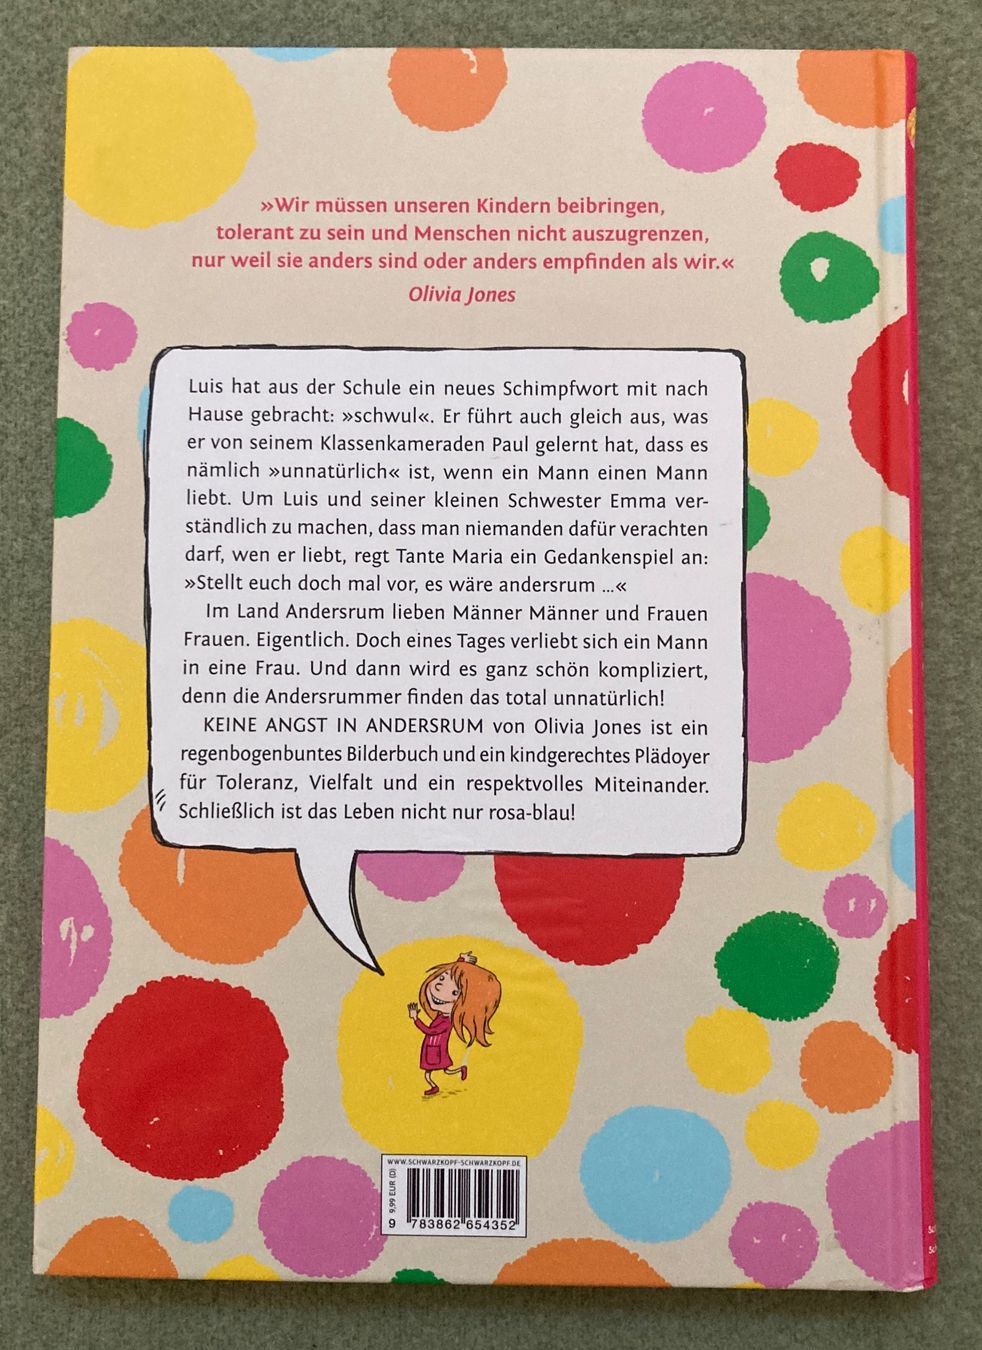 »Wir müssen unseren Kindern beibringen,
tolerant zu sein und Menschen nicht auszugrenzen,
nur weil sie anders sind oder anders empfinden als wir.«
Olivia Jones
Luis hat aus der Schule ein neues Schimpfwort mit nach
Hause gebracht: »schwul«. Er führt auch gleich aus, was
er von seinem Klassenkameraden Paul gelernt hat, dass es
nämlich »unnatürlich« ist, wenn ein Mann einen Mann
liebt. Um Luis und seiner kleinen Schwester Emma ver-
ständlich zu machen, dass man niemanden dafür verachten
darf, wen er liebt, regt Tante Maria ein Gedankenspiel an:
»Stellt euch doch mal vor, es wäre andersrum ...«
Im Land Andersrum lieben Männer Männer und Frauen
Frauen. Eigentlich. Doch eines Tages verliebt sich ein Mann
in eine Frau. Und dann wird es ganz schön kompliziert,
denn die Andersrummer finden das total unnatürlich!
KEINE ANGST IN ANDERSRUM von Olivia Jones ist ein
regenbogenbuntes Bilderbuch und ein kindgerechtes Plädoyer
für Toleranz, Vielfalt und ein respektvolles Miteinander.
Schließlich ist das Leben nicht nur rosa-blau!
WWW.SCHWARZKOPF-SCHWARZKOPF.DE
9,99 EUR (D)
9 783862 654352